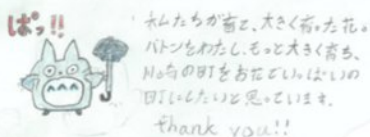 ぱっ!!
私たちが育て、大きく育った花。
バトンをわたし、もっと大きく育ち、
の町をお花でいっぱいの
町にしたいと思っています。
thank you!!